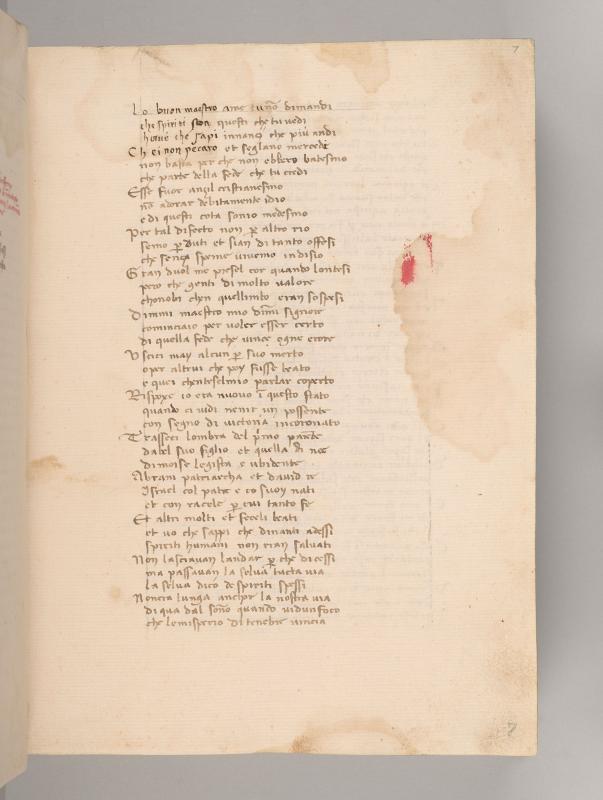 7
Lo buon maestro ame tu nō dimandi
che spiriti son questi che tu vedi
hor vue che sapi innanci che piu andi
Ch ei non pecaro et seglano mercede
non basta per che non ebbero batesmo
che parte della fede che tu credi
Esse fuor anzil cristianesmo
nō adorar debitamente idio
e di questi cota sonio medesmo
Per tal difecto non p altro rio
semo p duti et sian di tanto offesi
che senza speme vivemo indisio
Gran duol me presel cor quando lontesi
pero che genti di molto valore
chonobi chen quellimbo eran sospesi
Dimmi maestro mio dīmi signore
cominciaio per voler esser certo
di quella fede che vince ogne erore
Uscici may alcun p suo merto
o per altrui che poy fusse beato
e quei chentesel mio parlar coperto
Rispoxe io era nuovo ī questo stato
quando ci vidi venir un possente
con segno di victoria incoronato
Trasseci lombra del pmo parēte
dabel suo figlio et quella di noe
di moise legista e ubidente
Abram patriarcha et david re
Israel col patre e co suoy nati
et con rachele p cui tanto fe
Et altri molti et feceli beati
et vo che sappi che dinanti adessi
spiriti humani non eran salvati
Non lasciavan landar p che dicessi
ma passavan la selva tucta via
la selva dico de spiriti spessi
Non era lunga anchor la nostra via
di qua dal sōno quando vidunfoco
che lemisperio di tenebre vincia
7